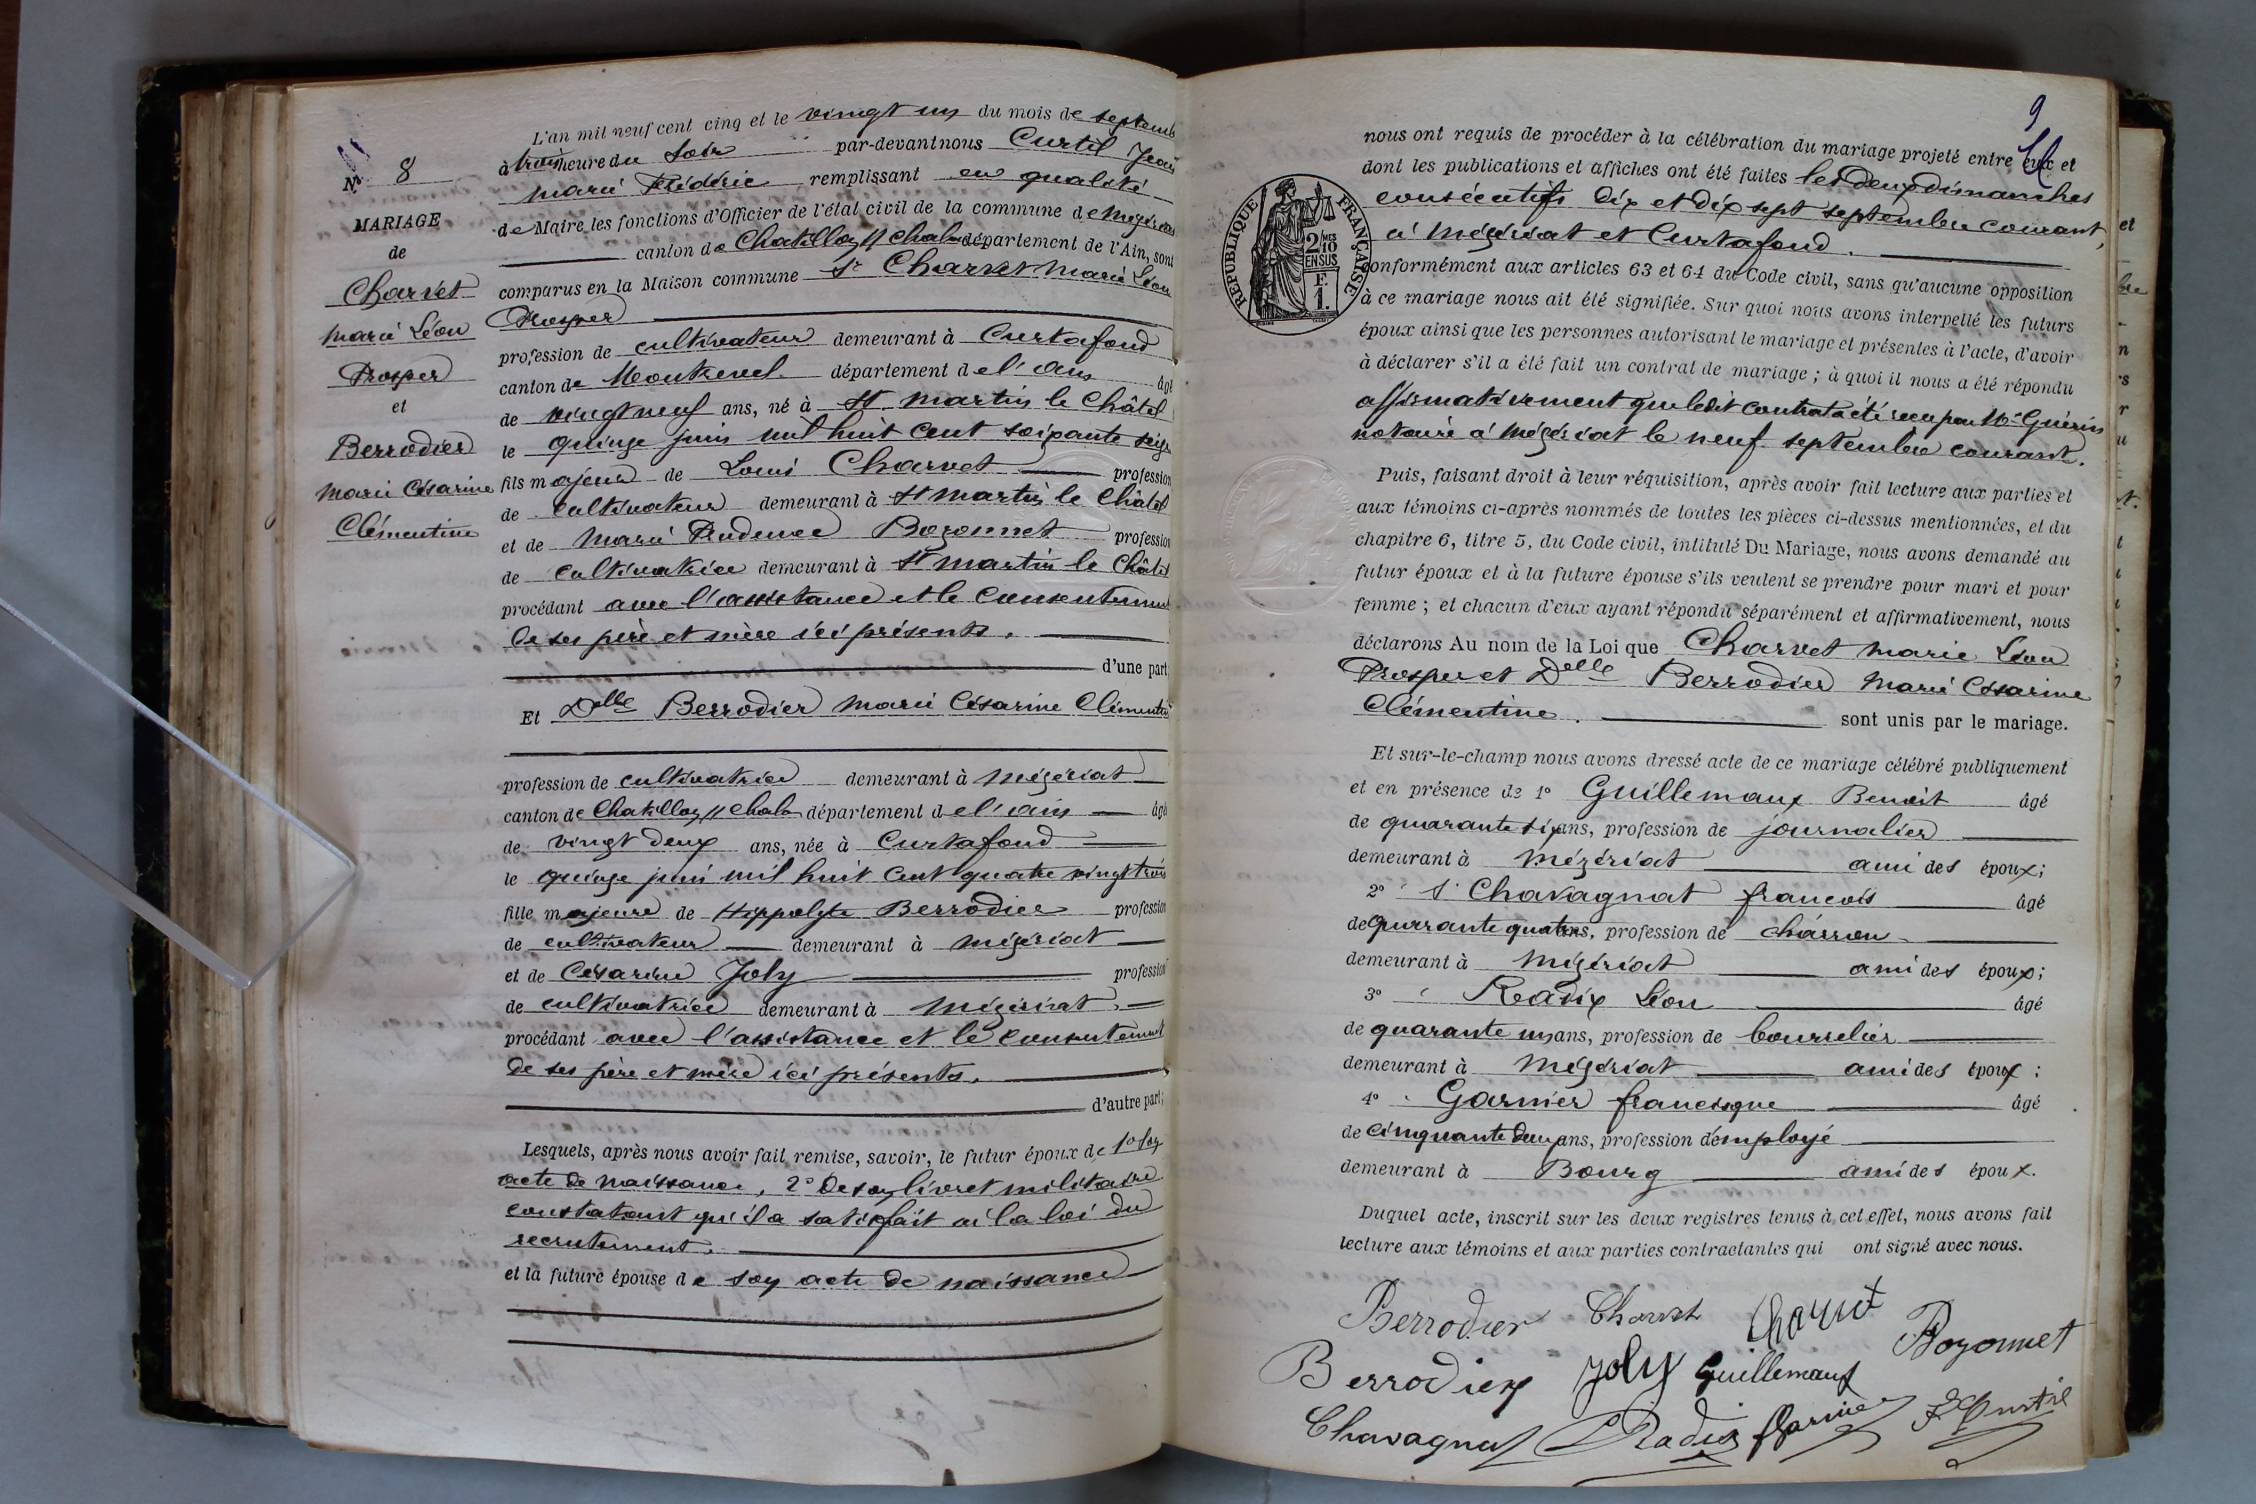 N° 8
MARIAGE
de
Charvet
Marie Léon
Prosper
et
Berrodier
Marie Césarine
Clémentine
L'an mil neuf cent cinq et le vingt un du mois de septemb
à trois heure du soir par-devant nous Curtil Jean
Marie Frédéric remplissant en qualité
de Maire les fonctions d'Officier de l'état civil de la commune de Mézériat
canton de Chatillon s/ Chal. département de l'Ain, sont
comparus en la Maison commune Sr Charvet Marie Léon
Prosper
profession de cultivateur demeurant à Curtafond
canton de Montrevel département de l'Ain âgé
de vingt neuf ans, né à St Martin le Châtel
le quinze juin mil huit cent soixante seize
fils majeur de Louis Charvet profession
de cultivateur demeurant à St Martin le Châtel
et de Marie Prudence Bozonnet profession
de cultivatrice demeurant à St Martin le Châtel
procédant avec l'assistance et le consentement
de ses père et mère ici présents.
d'une part
Et Delle Berrodier Marie Césarine Clémentine
profession de cultivatrice demeurant à Mézériat
canton de Chatillon s/ Chal. département de l'Ain âgé
de vingt deux ans, née à Curtafond
le quinze juin mil huit cent quatre vingt trois
fille majeure de Hippolyte Berrodier profession
de cultivateur demeurant à Mézériat
et de Césarine Joly profession
de cultivatrice demeurant à Mézériat.
procédant avec l'assistance et le consentement
de ses père et mère ici présents.
d'autre part;
Lesquels, après nous avoir fait remise, savoir, le futur époux de 1° son
acte de naissance, 2° de son livret militaire
constatant qu'il a satisfait à la loi du
recrutement.
et la future épouse de son acte de naissance
9
nous ont requis de procéder à la célébration du mariage projeté entre eux et
dont les publications et affiches ont été faites les deux dimanches
consécutifs dix et dix sept septembre courant,
à Mézériat et Curtafond.
RÉPUBLIQUE FRANÇAISE
2/10
EN SUS
F.
1.
conformément aux articles 63 et 64 du Code civil, sans qu'aucune opposition
à ce mariage nous ait été signifiée. Sur quoi nous avons interpellé les futurs
époux ainsi que les personnes autorisant le mariage et présentes à l'acte, d'avoir
à déclarer s'il a été fait un contrat de mariage ; à quoi il nous a été répondu
affirmativement que ledit contrat a été reçu par Me Guérin
notaire à Mézériat le neuf septembre courant.
Puis, faisant droit à leur réquisition, après avoir fait lecture aux parties et
aux témoins ci-après nommés de toutes les pièces ci-dessus mentionnées, et du
chapitre 6, titre 5, du Code civil, intitulé Du Mariage, nous avons demandé au
futur époux et à la future épouse s'ils veulent se prendre pour mari et pour
femme ; et chacun d'eux ayant répondu séparément et affirmativement, nous
déclarons Au nom de la Loi que Charvet Marie Léon
Prosper et Delle Berrodier Marie Césarine
Clémentine. sont unis par le mariage.
Et sur-le-champ nous avons dressé acte de ce mariage célébré publiquement
et en présence de 1° Guillemaux Benoit âgé
de quarante six ans, profession de journalier
demeurant à Mézériat ami des époux;
2° Chavagnat françois âgé
de quarante quatre ans, profession de charron
demeurant à Mézériat ami des époux;
3° Radix Léon âgé
de quarante un ans, profession de bourrelier
demeurant à Mézériat ami des époux ;
4° Garnier francisque âgé
de cinquante deux ans, profession d'employé
demeurant à Bourg ami des époux.
Duquel acte, inscrit sur les deux registres tenus à cet effet, nous avons fait
lecture aux témoins et aux parties contractantes qui ont signé avec nous.
Berrodier Charvet Charvet Bozonnet
Berrodier Joly Guillemaux
Chavagnat Radix Garnier Curtil